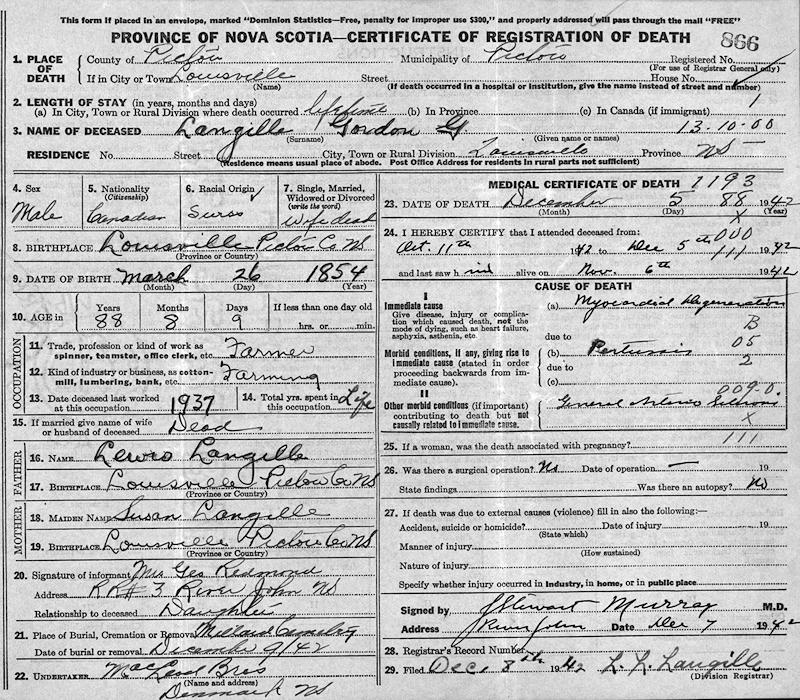 This form if placed in an envelope, marked "Dominion Statistics—Free, penalty for improper use $300," and properly addressed will pass through the mail "FREE"
PROVINCE OF NOVA SCOTIA—CERTIFICATE OF REGISTRATION OF DEATH
866
1. PLACE OF DEATH
County of Pictou Municipality of Pictou Registered No.
(For use of Registrar General only)
If in City or Town Louisville Street House No.
(Name) (If death occurred in a hospital or institution, give the name instead of street and number)
2. LENGTH OF STAY (in years, months and days)
(a) In City, Town or Rural Division where death occurred lifetime (b) In Province (c) In Canada (if immigrant) 1
3. NAME OF DECEASED Langille Gordon G. 13-10-00
(Surname) (Given name or names)
RESIDENCE No. Street City, Town or Rural Division Louisville Province NS
(Residence means usual place of abode. Post Office Address for residents in rural parts not sufficient)
4. Sex Male
5. Nationality (Citizenship) Canadian
6. Racial Origin Swiss
7. Single, Married, Widowed or Divorced (write the word) Wife dead
8. BIRTHPLACE Louisville Pictou Co NS
(Province or Country)
9. DATE OF BIRTH March 26 1854
(Month) (Day) (Year)
10. AGE in Years 88 Months 8 Days 9 If less than one day old hrs. or min.
OCCUPATION
11. Trade, profession or kind of work as spinner, teamster, office clerk, etc. Farmer
12. Kind of industry or business, as cotton-mill, lumbering, bank, etc. Farming
13. Date deceased last worked at this occupation. 1937 14. Total yrs. spent in this occupation. Life
15. If married give name of wife or husband of deceased Dead
FATHER
16. NAME Lewis Langille
17. BIRTHPLACE Louisville Pictou Co NS
(Province or Country)
MOTHER
18. MAIDEN NAME Susan Langille
19. BIRTHPLACE Louisville Pictou Co NS
(Province or Country)
20. Signature of informant Mrs Geo Redmond
Address RR# 3 River John NS
Relationship to deceased Daughter
21. Place of Burial, Cremation or Removal Cemetery
Date of burial or removal December 9/42
22. UNDERTAKER MacLeod Bros
(Name and address)
Denmark NS
MEDICAL CERTIFICATE OF DEATH 1193
23. DATE OF DEATH December 5 88 1942
(Month) (Day) X (Year)
24. I HEREBY CERTIFY that I attended deceased from: 000
Oct. 11th 1942 Dec 5th 111 1942
and last saw h im alive on Nov. 6th 1942
CAUSE OF DEATH
I
Immediate cause
Give disease, injury or complication which caused death, not the mode of dying, such as heart failure, asphyxia, asthenia, etc.
(a) Myocardial Degeneration
B
due to
Morbid conditions, if any, giving rise to immediate cause (stated in order proceeding backwards from immediate cause)
(b) Pertussis 05
due to 2
(c) 009.0.
II
Other morbid conditions (if important) contributing to death but not causally related to immediate cause.
General Arterio
X
111
25. If a woman, was the death associated with pregnancy?
26. Was there a surgical operation? No Date of operation — 19
State findings Was there an autopsy? No
27. If death was due to external causes (violence) fill in also the following:—
Accident, suicide or homicide? Date of injury 19
(State which)
Manner of injury
(How sustained)
Nature of injury
Specify whether injury occurred in industry, in home, or in public place
Signed by J Stewart Murray M.D.
Address River John Date Dec 7 1942
28. Registrar's Record Number
29. Filed Dec. 8th 1942 Langille
(Division Registrar)